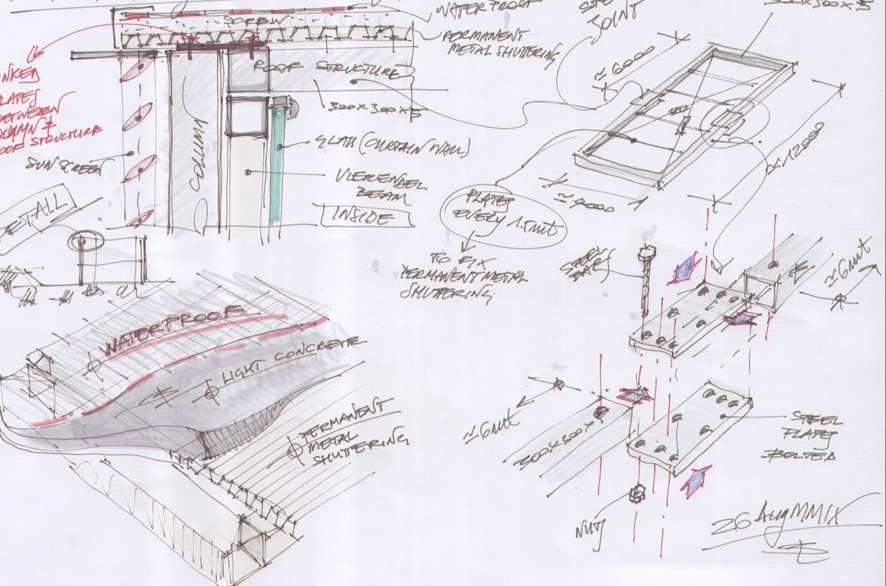 WATERPROOF
PERMANENT
METAL SHUTTERING
JOINT
300x300x5
ROOF STRUCTURE
300x300x5
PLATES
BETWEEN
COLUMN &
ROOF STRUCTURE
SUN SCREEN
COLUMN
GLASS (CURTAIN WALL)
VIERENDEL
BEAM
INSIDE
≈6000
≈12000
≈4000
PLATES
EVERY 1.5mt
TO FIX
PERMANENT METAL
SHUTTERING
≈6mt
WATERPROOF
LIGHT CONCRETE
PERMANENT
METAL
SHUTTERING
≈6mt
300x300x5
STEEL
PLATES
BOLTED
NUT
26 Aug MMIX